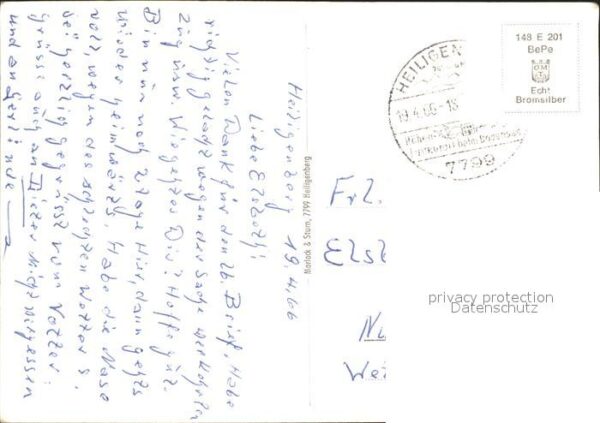 Heiligenberg 19.4.66
Liebe Elsbeth!
Vielen Dank für den lb. Brief, Habe
richtig gelacht wegen der Sache
Wie geht es Dir? Hoffe gut.
Bin nur noch 2 Tage hier, dann geht's
wieder heimwärts. Habe die Nase
voll, wegen des schlechten Wetters
Sei herzlich gegrüsst vom Vetter
Grüsse auch an Dieter nicht vergessen
und an Gerlinde
Morlock & Sturn, 7799 Heiligenberg
HEILIGEN
19.4.66-18
7799
148 E 201
BePe
Echt
Bromsilber
Frl.
Elsb
Nü
Wei
privacy protection
Datenschutz